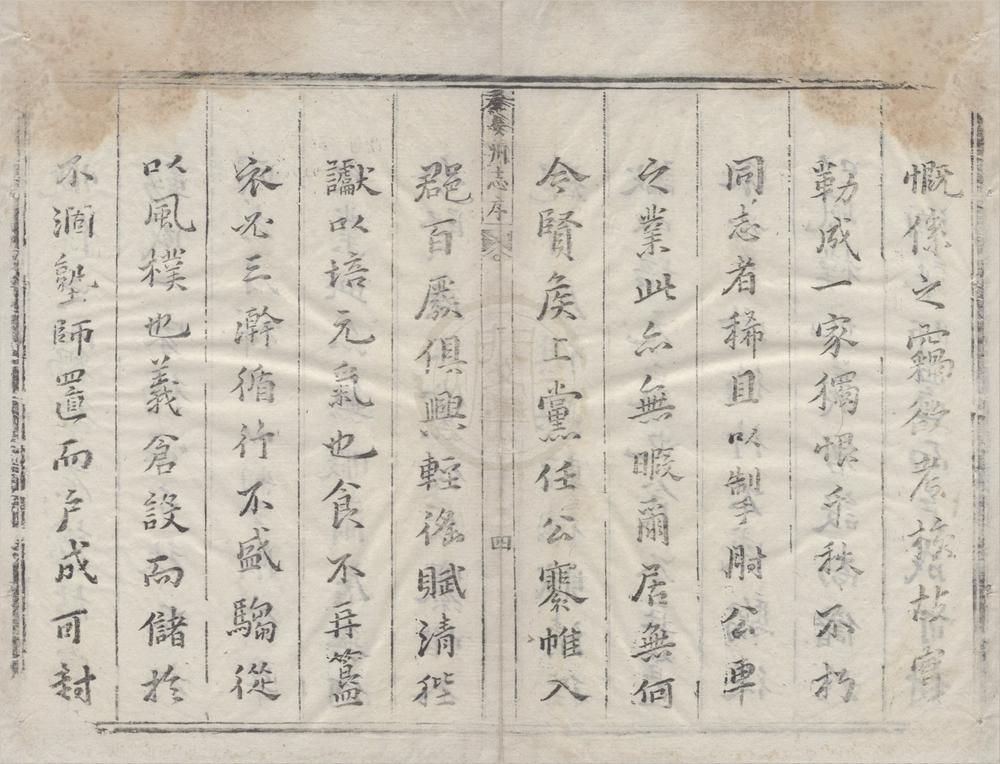 慨係之竊欲考核故實
勒成一家獨恨千秋不朽
同志者稀且以掣肘公車
之業此亦無暇爾居無何
今賢矦上黨任公褰帷入
秦州志序 四
郡百廢俱興輕徭賦清狴
讞以培元氣也食不再簋
衣必三澣循行不盛騶從
以風樸也義倉設而儲於
不涸塾師置而戶成可封